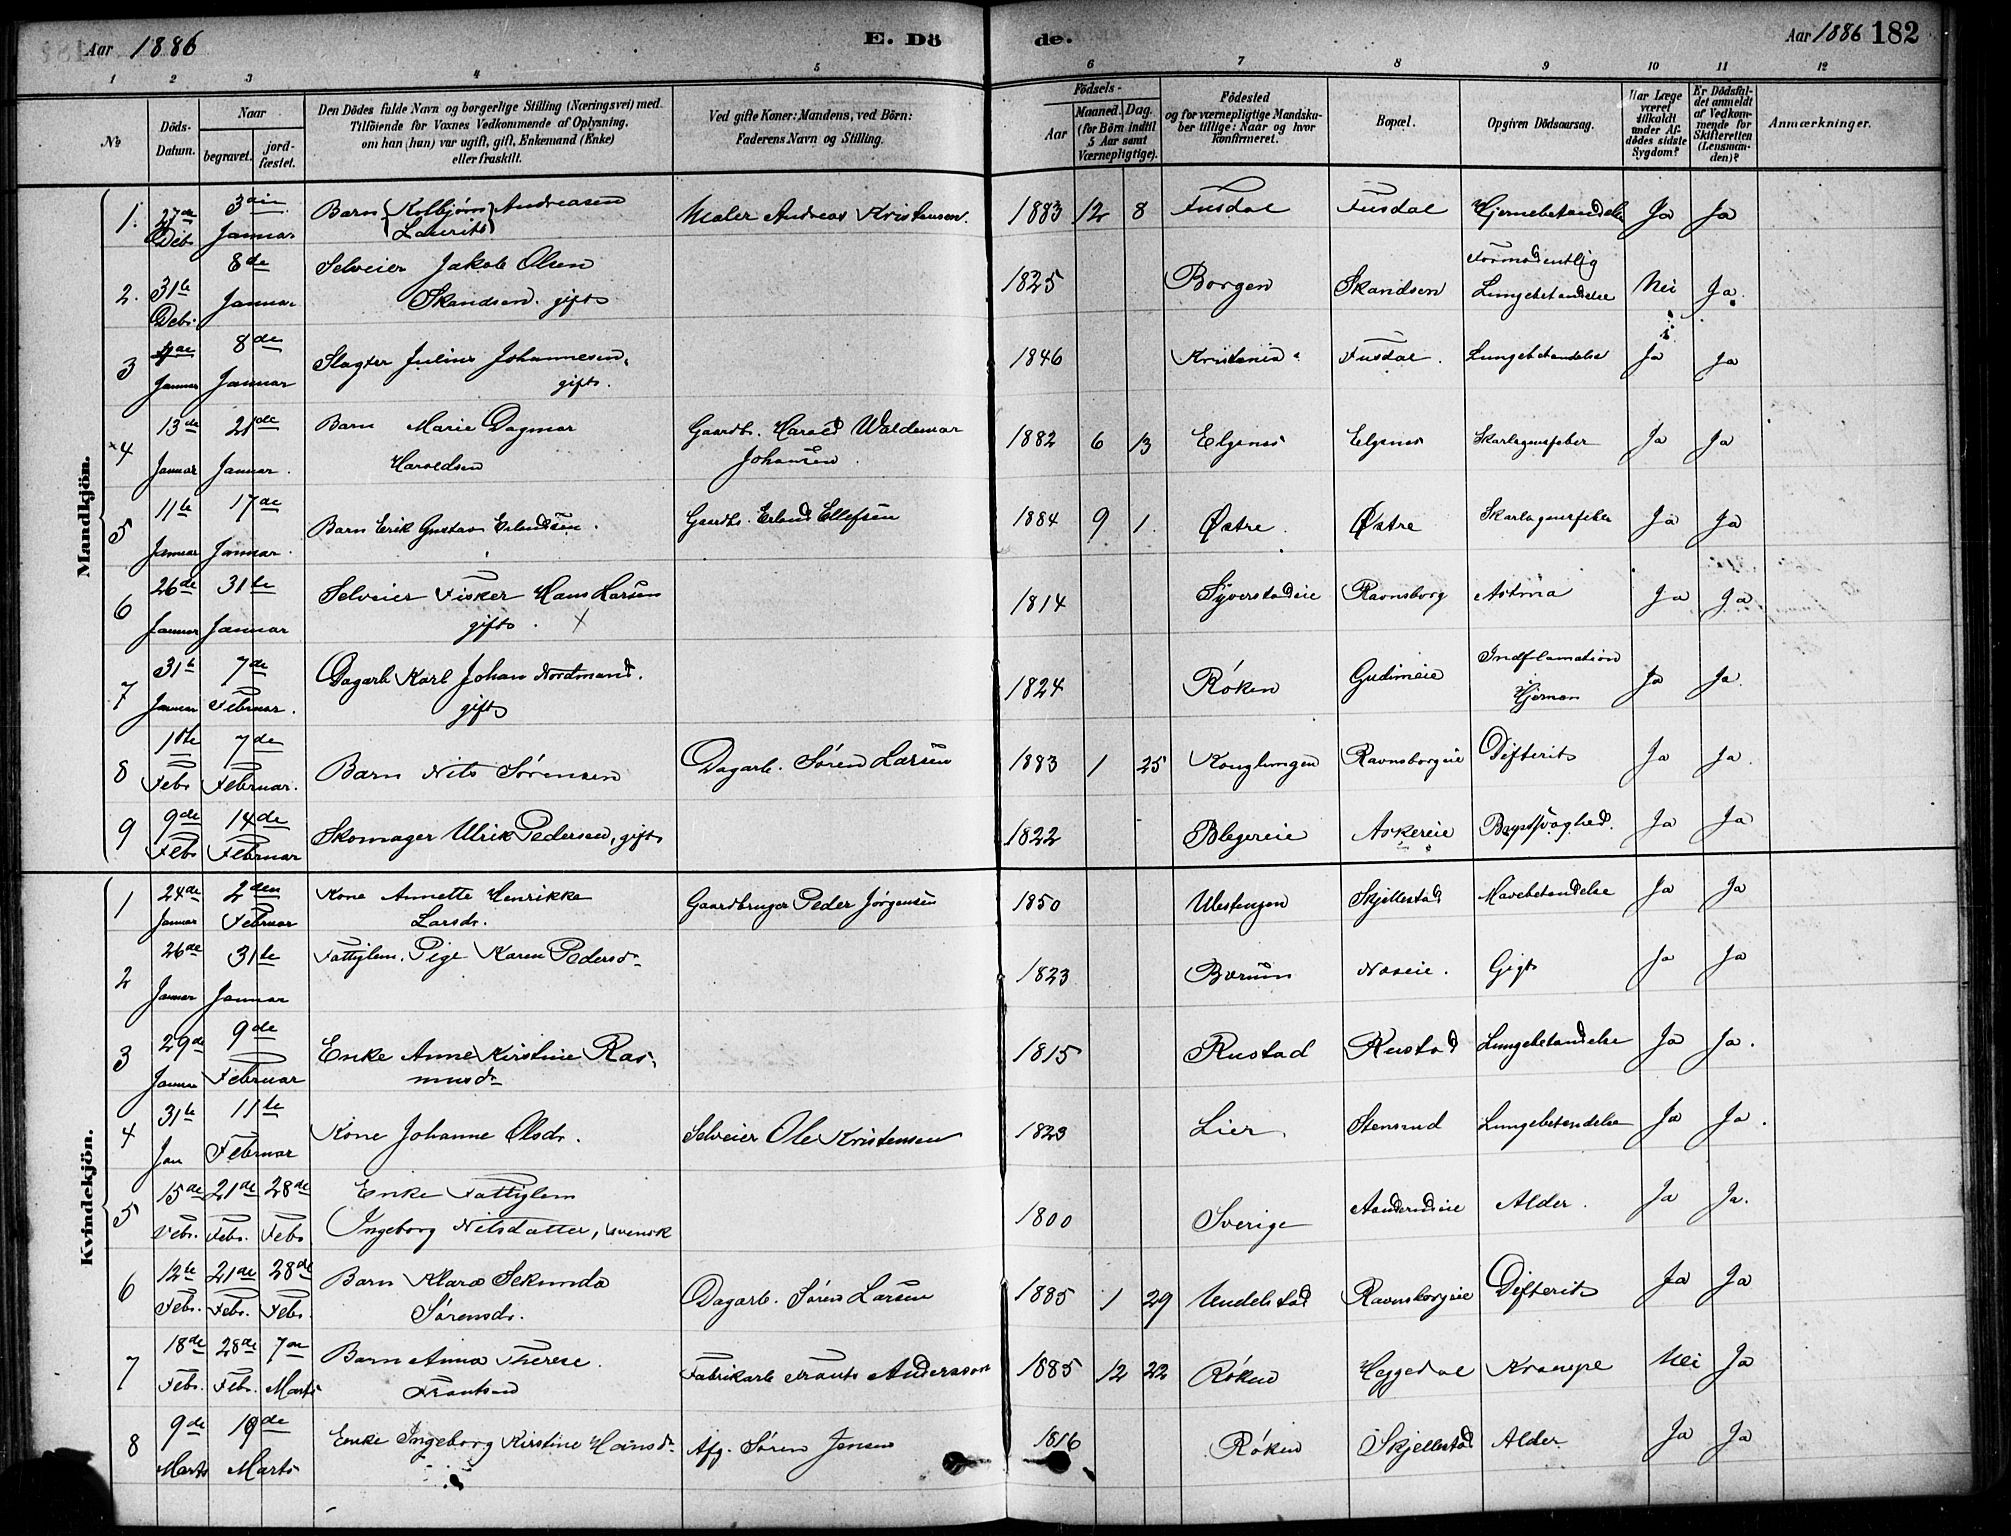 Aar 1886 E. Dö de. Aar 1886 182
1 2 3 4 5 6 7 8 9 10 11 12
№
Döds-Datum.
Naar
begravet.
jord-fæstet.
Den Dödes fulde Navn og borgerlige Stilling (Næringsvei) med
Tilföiende for Voxnes Vedkommende af Oplysning,
om han (hun) var ugift, gift, Enkemand (Enke)
eller fraskilt.
Ved gifte Koner: Mandens, ved Börn:
Faderens Navn og Stilling.
Födsels-
Aar
Maaned. Dag.
(for Börn indtil
5 Aar samt
Værnepligtige).
Födested
og for værnepligtige Mandska-
ber tillige: Naar og hvor
Konfirmeret.
Bopæl.
Opgiven Dödsaarsag.
Har Læge
været
tilkaldt
under Af-
dödes sidste
Sygdom?
Er Dödsfal-
det anmeldt
af Vedkom-
mende for
Skifteretten
(Lensman-
den)?
Anmærkninger.
Mandkjön.
1. 27de Debr. 3die Januar Barn Kolbjørn Laurits Andreasen Maler Andreas Kristensen 1883 12 8 Fusdal Fusdal Hjernebetændelse Ja Ja
2. 31te Debr. 8de Januar Selveier Jakob Olsen Skandsen. gift 1825 Borgen Skandsen Formodentlig Lungebetændelse Nei Ja
3 Januar 8de Januar Slagter Julius Johannesen, gift. 1846 Kristiania Fusdal. Lungebetændelse Ja Ja
×4 13de Januar 21de Januar. Barn Marie Dagmar Haroldsen Gaardbr. Harald Waldemar Johansen 1882 6 13 Elgenes Elgenes Skarlagensfeber Ja Ja
5 11te Januar 17de Januar. Barn Erik Gustav Erlandsen. Gaardbr. Erland Ellefsen 1884 9 1. Østre. Østre Skarlagensfeber Ja Ja
6 26de Januar 31te Januar Selveier Fisker Hans Larsen gift. × 1814 Syverstadeie Ravnsborg Astma Ja Ja
7 31te Januar 7de Februar. Dagarb Karl Johan Nordmand. gift 1824 Røken Gudimeie Indflamation Hjernen Ja Ja.
8 Febr 7de Februar. Barn Nils Sørensen Dagarb. Søren Larsen 1883 1 25 Konglungen Ravnsborgeie Difterit Ja Ja.
9 9de Febr 14de Februar Skomager Ulrik Pedersen, gift 1822 Blegereie Askereie Brystsvaghed. Ja Ja
Kvindekjön.
1 24de Januar 2den Februar Kone Annette Henrikke Larsdr. Gaardbruger Peder Jørgensen 1850 Ulestengen Skjellestad Mavebetændelse Ja Ja
2 26de Januar 31te Januar Fattiglem. Pige Karen Pedersdr 1823 Bærum Næseie. Gigt Ja Ja
3 29de Januar 9de Februar Enke Anne Kirstine Rasmusdr 1815 Rustad Rustad Lungebetændelse Ja Ja.
4 31te Jan 11te Februar Kone Johanne Olsdr. Selveier Ole Kristensen 1823 Lier. Stensrud Lungebetændelse Ja Ja.
5 15de Febr. 21de Febr. 28de Febr Enke Fattiglem Ingeborg Nilsdatter, svensk 1800 Sverige Alder. Ja Ja.
6 12te Febr. 21de Febr. 28de Febr. Barn Klara Sekunda Sørensdr. Dagarb. Søren Larsen 1885 1 29 Undelstad Ravnsborgeie Difterit Ja Ja
7 18de Febr. 28de Febr. 7de Marts Barn Anna Therese. Frantsen Fabrikarb Frants Andersson 1885 12 22 Røken Heggedal Krampe Nei Ja
8 9de Marts 19de Marts Enke Ingeborg Kirstine Hansdr Afg. Søren Jensen 1816 Røken Skjellestad Alder Ja Ja